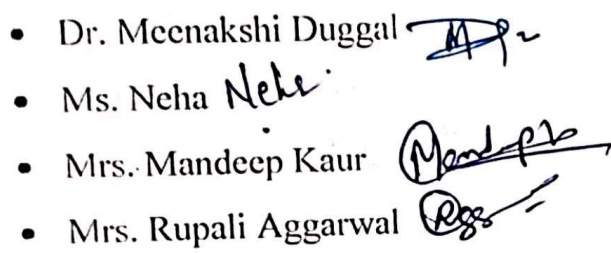 • Dr. Meenakshi Duggal
• Ms. Neha Neha
• Mrs. Mandeep Kaur
• Mrs. Rupali Aggarwal